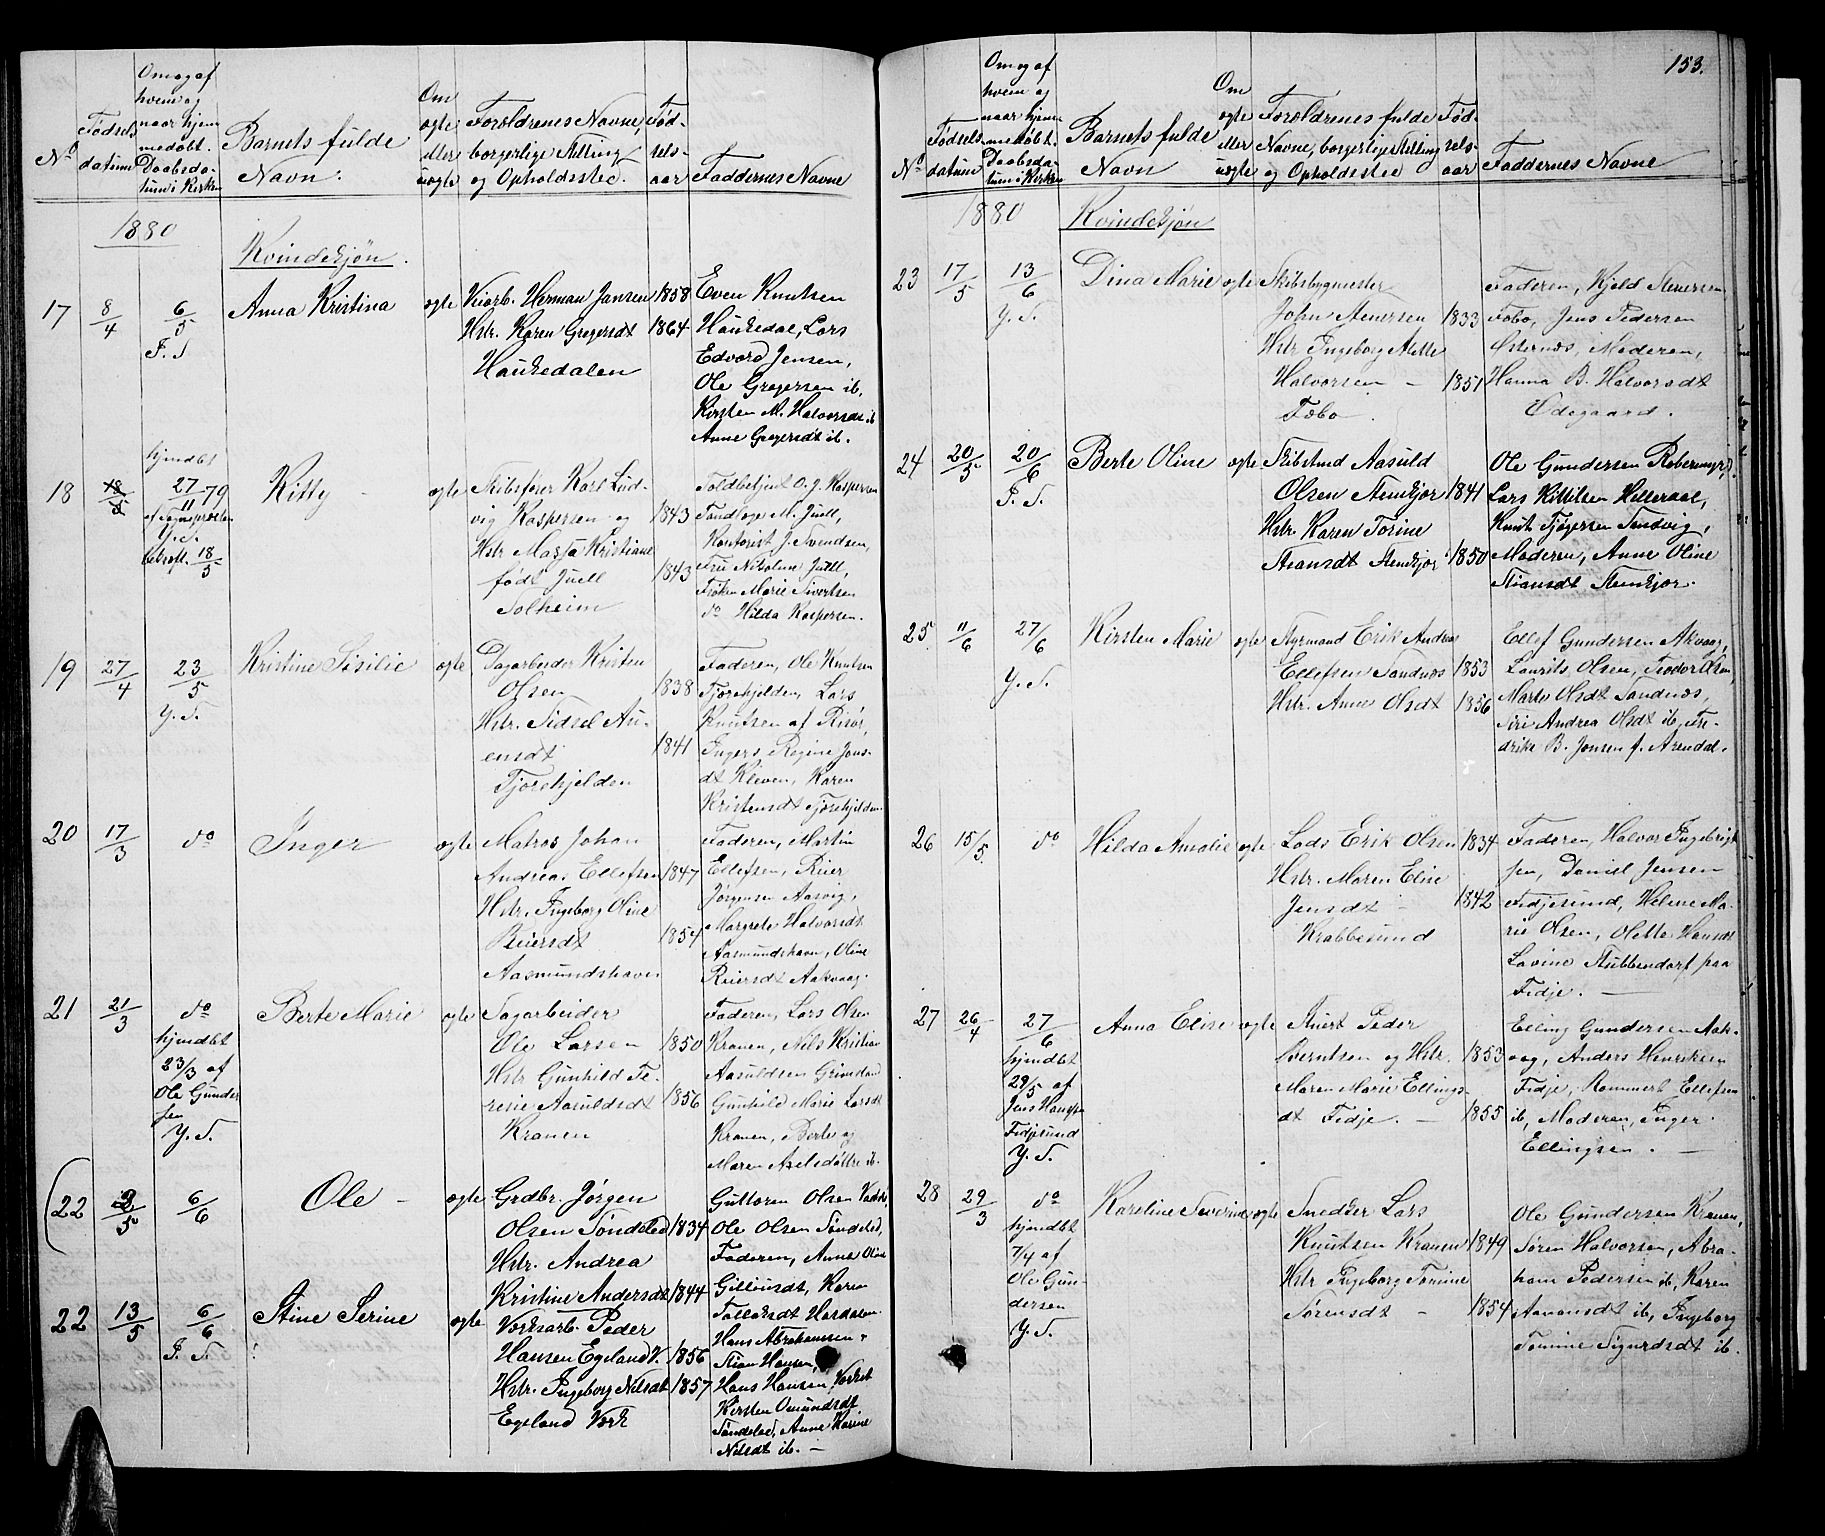 1880
Kvindekjøn.
No
Fødsels
datum
Om og af
hvem og
naar hjem
medøbt.
Daabsda-
tum i Kirken
Barnets fulde
Navn.
Om
ægte
eller
uægte
Forældrenes Navne,
borgerlige Stilling
og Opholdssted.
Fød-
sels-
aar
Faddernes Navne
17
8/4
6/5
S. S
Anna Kristina
ægte
Herman Jansen 1858
Hstr. Karen Gregersdt 1864
Haukedalen
Even Knutsen
Haukedal, Lars
Edvard Jensen,
Ole Gregersen ib,
Kirsten M. Halvorsdt ib
Anne Gregersdt ib.
18
hjmdbt
27/11 79
af Sognepræsten
Y. S.
bekræft. 18/5
Kitty
ægte
Skibsfører Karl Lud-
vig Kaspersen og 1843
Hstr Magja Kristiane
født Juell 1843
Solheim
Toldbetjent O. J. Kaspersen
Tandlæge M. Juell,
Kontorist J. Svendsen,
Fru Nikoline Juell,
Frøken Marie Sivertsen
do Hilda Kaspersen.
19
27/4
23/5
Y. S.
Kristine Sisilie
ægte
Dagarbeider Kristen
Olsen 1838
Hstr. Sidsel Au-
ensdt 1841
Tjørehjelden
Faderen, Ole Knutsen
Tjørehjelden, Lars
Knutsen af Risør,
Ingers Regine Jens-
dt Kleven, Karen
Kristensdt Tjørehjelden
20
17/3
do
Inger
ægte
Matros Johan
Andreas Ellefsen 1847
Hstr. Ingeborg Oline
Reiersdt 1854
Aasmundshavn
Faderen, Martin
Ellefsen, Reier
Jørgensen Aasvig,
Margrete Halvorsdt
Aasmundshavn, Oline
Reiersdt Aakvaag.
21
21/3
do
hjmdbt
23/3 af
Ole Gunder
sen
Y. S.
Berte Marie
ægte
Dagarbeider
Ole Larsen 1850
Hstr Gunhild Te-
resie Aasuldsdt 1856
Kranen
Faderen, Lars Olsen
Kranen, Nils Kristian
Aasuldsen Grimdan
Gunhild Marie Larsdt
Kranen, Berte og
Maren Axelsdøttre ib.
(22
2/5
6/6
Ole
ægte
Grdbr. Jørgen
Olsen Søndeled 1834
Hstr. Andrea
Kristine Andersdt 1844
Guttoren Olsen
Ole Olsen Søndeled,
Faderen, Anne Oline
Karen
22
13/5
6/6
S. S.
Stine Serine
ægte
Værksarb. Peder
Hansen Egeland V. 1856
Hstr. Ingeborg Nilsdt 1857
Egeland Værk
Hans Abrahamsen
Stian Hansen,
Hans Hansen, Værket
Kirsten Omundsdt
Søndeled, Anne Karine
Nilsdt ib.
153.
No
Fødsels
datum
Om og af
hvem og
naar hjem
medøbt.
Daabsda-
tum i Kirken
Barnets fulde
Navn
Om
ægte
eller
uægte
Forældrenes fulde
Navne, borgerlige Stilling
og Opholdssted
Fød-
sels-
aar
Faddernes Navne
1880
Kvindekjøn
23
17/5
13/6
Y. S.
Dina Marie
ægte
Skibsbygmester
John Stenersen 1833
Hstr Ingeborg Mette
Halvorsen 1851
Føbo.
Faderen, Kjeld Stenersen
Føbo, Jens Pedersen
Østernæs, Moderen,
Hanna B. Halvorsdt
Ødegaard.
24
20/5
20/6
S. S.
Berte Oline
ægte
Skibstmd Aasuld
Olsen Stenkjær 1841
Hstr. Karen Torine
Stiansdt Stenkjær 1850
Ole Gundersen Robersmyr,
Lars Kittilsen Helleraal,
Knut Tjøgersen Sandvig,
Moderen, Anne Oline
Stiansdt Stenkjær.
25
11/6
27/6
Y. S.
Kirsten Marie
ægte
Styrmand Erik Andreas
Ellefsen Sandnæs 1853
Hstr. Anne Olsdt 1856
Ellef Gundersen Akvaag,
Laurits Olsen, Teodor Olsen,
Marte Olsdt Sandnæs,
Siri Andrea Olsdt ib, Fre-
drike B. Jensen f. Arendal.
26
15/5.
do
Hilda Amalie
ægte
Lods Erik Olsen 1834
Hstr. Maren Elise
Jensdt 1842
Krabbesund
Faderen, Halvor Ingebrigt
sen, Daniel Jensen
Fidjesund, Helene Ma-
rie Olsen, Olette Hansdt
Lovine Stubbendorf paa
Fidje.
27
26/4
27/6
hjmdbt
29/5 af
Jens Hansen
Fidjesund
Y. S.
Anna Elise
ægte
Stuert Peder
Berntsen og Hstr. 1853
Maren Marie Ellings-
dt Fidje. 1855
Elling Gundersen Aak-
vaag, Anders Henriksen
Fidje, Rommert Ellefsen
ib, Moderen, Inger
Ellingsen.
28
29/3
do
hjmdbt
7/4 af
Ole Gun-
dersen
Y. S.
Karoline Severine
ægte
Snedker Lars
Knutsen Kranen 1849
Hstr Ingeborg Tomine
Sørensdt 1854
Ole Gundersen Kranen,
Søren Halvorsen, Abra-
ham Pedersen ib, Karen
Aanonsdt ib, Ingeborg
Tomine Sigurdsdt ib.